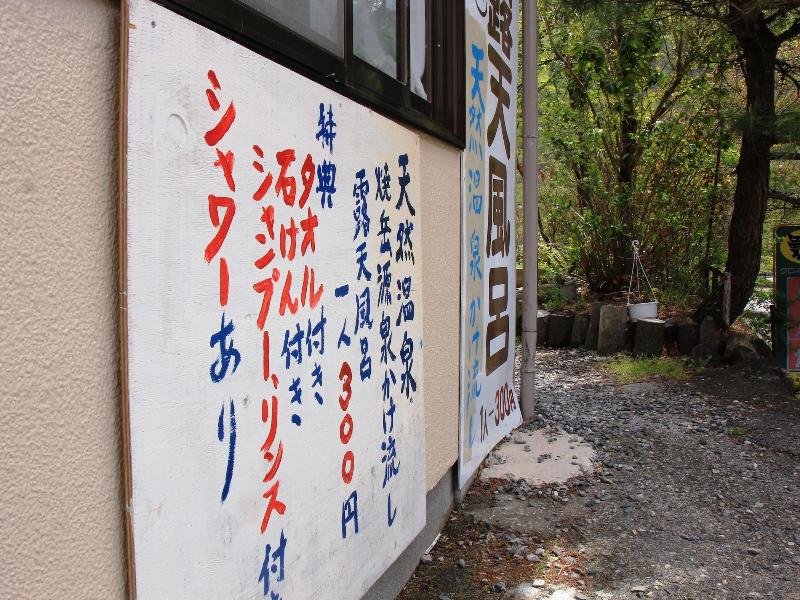 天然温泉
焼岳源泉かけ流し
露天風呂
一人300円
特典
タオル付き
石けん付き
シャンプー、リンス付き
シャワーあり
露天風呂
天然温泉かけ流し
1人300円